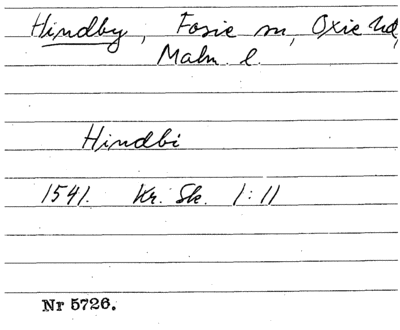 Hindby, Fosie sn, Oxie hd,
Malm. l.
Hindbi
1541. Kr. Sk. 1:11
Nr 5726.